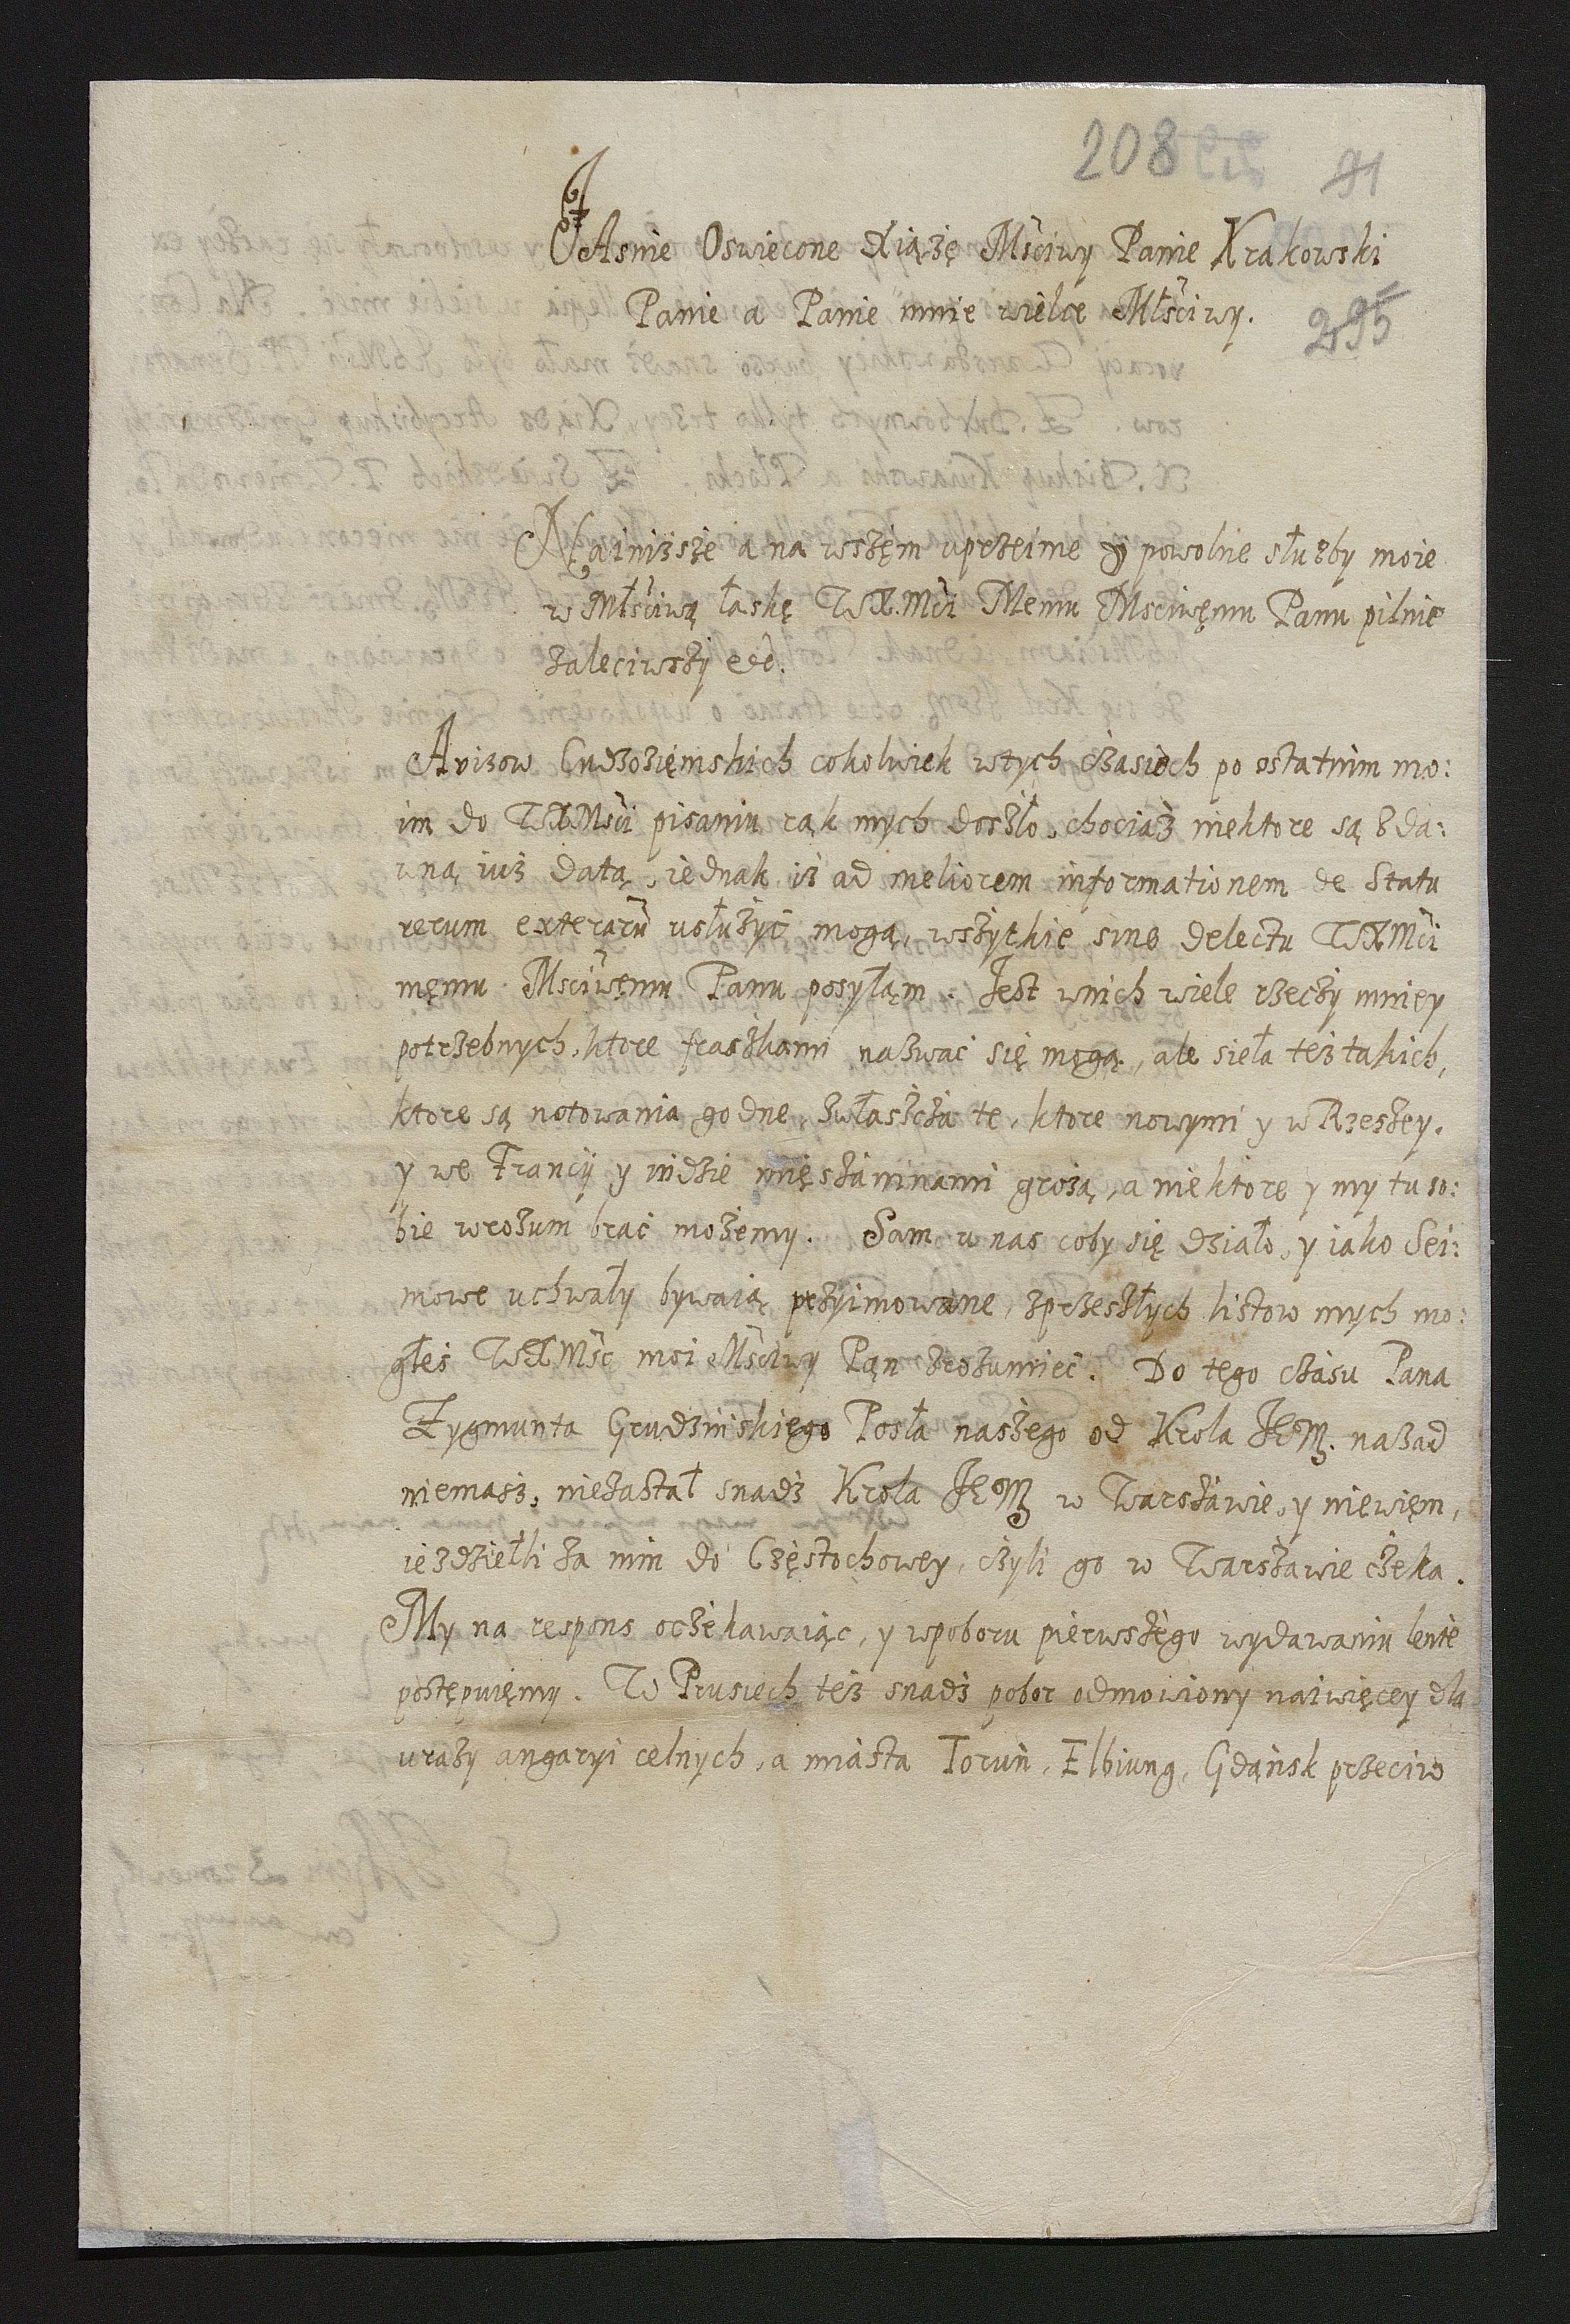 208
91
JAsnie Oswiecone Xiążę Mściwy Panie Krakowski
Panie a Panie mnie wielce Młściwy.
295
Nainiższe a na wszęm uprzeime y powolne służby moie
w Młściwą łaskę WX.Mći Memu Msciwęmu Panu pilnie
zaleciwszy etc.
Avizow Cudzozięmskich cokolwiek wtych czasiech po ostatnim mo:
im do WXMści pisaniu rąk mych doszło, chociaż niektore są z da:
wną iuż datą, iednak iż ad meliorem informationem de Statu
rerum exterarũ usłużyć mogą, wszytkie sine delectu WXMći
męmu Msciwęmu Panu posyłąm. Jest wnich wiele rzeczy mniey
potrzebnych, ktore fraszkami nazwać się mogą, ale sieła też takich,
ktore są notowania godne, zwłaszcza te, ktore nowymi y w Rzeszey.
y we Francij y indzie mięszaninami grożą, a niektore y my tu so:
bie wrozum brać możemy. Sam u nas coby się działo, y iako Sei:
mowe uchwały bywaią przyimowane, zprzeszłych listow mych mo:
głeś WXMśc moi Mściwy Pąn zrozumieć. Do tęgo czasu Pana
Zygmunta Grudzinskięgo Posła naszego od Krola JEM. nazad
niemasz, niezastał snadź Krola JEM w Warszawie, y niewięm,
ieździełli za nim do Częstochowey, czyli go w Warszawie czeka.
My na respons oczekawaiąc, y wpoboru pierwszęgo wydawaniu lente
postępuięmy. W Prusiech też snadź pobor odmowiony naiwięcey dla
urazy angaryi celnych, a miasta Toruń, Elbiung, Gdąńsk przeciw